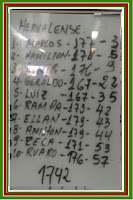 HERVALENSE.
1- MARCOS-173-3
2- HAMILTON-178-5
-176-9
4- GERALDO-167-22
5- LUIZ-167-35
6- RAMPA-173-42
7- ELLAN-179-43
8- ANILTON-179-44
9- ZECA-171-53
10- RUARO-176-57
1742